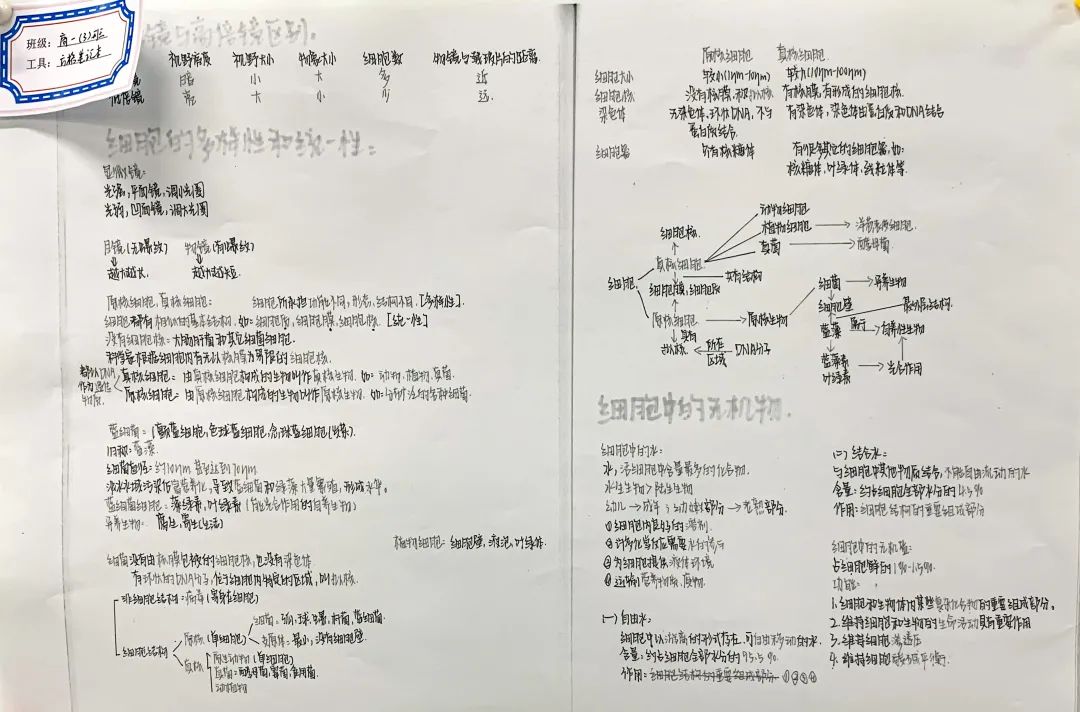 班级:高一(3)班
工具:
镜与高倍镜区别。
视野亮度 视野大小 物像大小 细胞数 物镜与玻片的距离
镜 暗 小 大 少 近
低倍镜 亮 大 小 远
细胞的多样性和统一性:
显微镜:
光强,平面镜,调小光圈
光弱,凹面镜,调大光圈
目镜(无螺纹) 物镜(有螺纹)
越大越短
原核细胞,真核细胞: 细胞所承担功能不同,形态,结构不同.[多样性].
细胞都有相似的基本结构.如:细胞质,细胞膜,细胞核.[统一性]
没有细胞核:大肠杆菌和其它细菌细胞.
科学家根据细胞内有无以核膜为界限的细胞核.
都以DNA作为遗传物质
真核细胞:由真核细胞构成的生物叫作真核生物.如:动物,植物,真菌.
原核细胞:由原核细胞构成的生物叫作原核生物.
蓝细菌:(颤蓝细胞,色球蓝细胞,念珠蓝细胞(发菜).
旧称:蓝藻.
细菌直径:约10μm 甚至达到70μm
淡水水域污染后富营养化,导致蓝细菌和绿藻大量繁殖,形成水华。
蓝细菌细胞:藻蓝素,叶绿素(能光合作用的自养生物)
异养生物:腐生,寄生(生活)
植物细胞:细胞壁,液泡,叶绿体.
细菌没有由核膜包被的细胞核,也没有染色体
有环状的DNA分子,位于细胞内特定的区域,叫拟核.
非细胞结构:病毒(寄生在细胞)
细胞结构
原核(单细胞)
细菌:球,螺,杆菌,蓝细菌.
支原体:最小,没有细胞壁.
真核
原生动物(单细胞)
真菌:酵母菌,霉菌,食用菌
动植物
原核细胞 真核细胞
细胞大小 较小(1μm-10μm) 较大(10μm-100μm)
细胞核 没有核膜 有核膜,有形成的细胞核.
染色体 无染色体,环状DNA,不与蛋白质结合 有染色体,染色体由蛋白质和DNA结合
细胞器 只有核糖体 有众多复杂的细胞器.如:核糖体,叶绿体,线粒体等
细胞
细胞核
真核细胞
动物细胞
植物细胞
真菌
洋葱表皮细胞
酵母菌
细胞膜,细胞质
原核细胞
具有
拟核 所在区域 DNA分子
原核生物
细菌 异养生物
细胞壁
蓝藻 属于 自养性生物
蓝藻素
叶绿素 光合作用
细胞中的无机物.
细胞中的水:
水:活细胞中含量最多的化合物.
水生生物>陆生生物
幼儿→成年:
①细胞内良好的溶剂
②许多化学反应需要水的参与
③为细胞提供液体环境
④运输营养物质,废物.
(一)自由水:
细胞中以游离的形式存在,可自由移动的水.
含量:约占细胞全部水分的95.5%
作用:细胞结构的重要组成部分 ①②③④
(二)结合水
与细胞中其他物质结合,不能自由流动的水
含量:约占细胞全部水分的4.5%
作用:细胞结构的重要组成部分
细胞中的无机盐:
占细胞鲜重的1%-1.5%.
功能:
1.细胞和生物体内某些复杂化合物的重要组成部分。
2.维持细胞和生物的生命活动具有重要作用
3.维持细胞渗透压
4.维持细胞酸碱平衡.